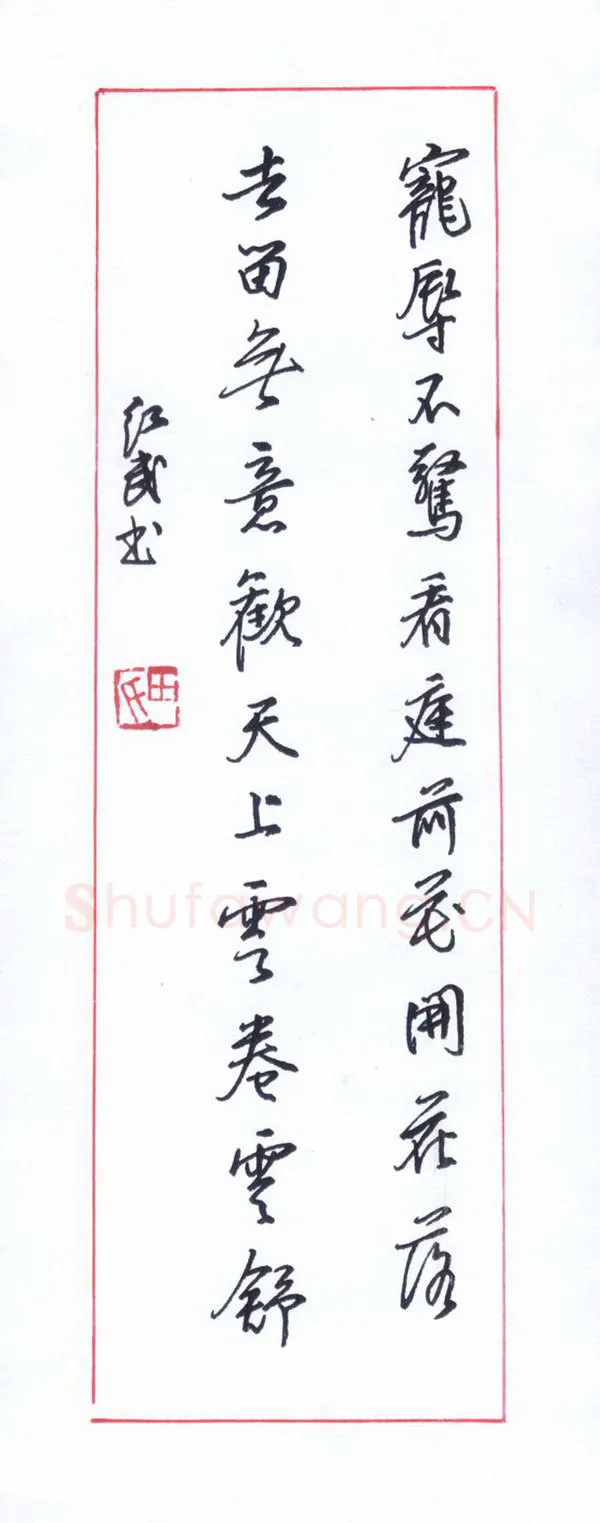 寵辱不驚看庭前花開花落
去留無意觀天上雲卷雲舒
红武书
田氏
Shufawang.CN